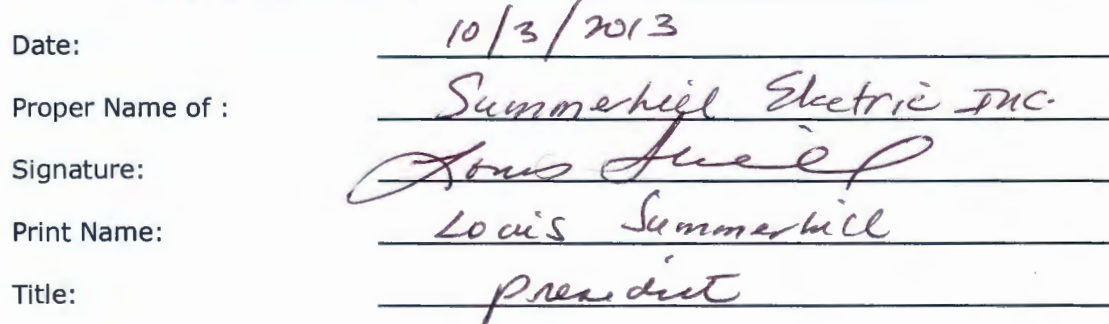 Date: 10/3/2013
Proper Name of : Summerhill Electric Inc.
Signature: Louis
Print Name: Louis Summerhill
Title: President